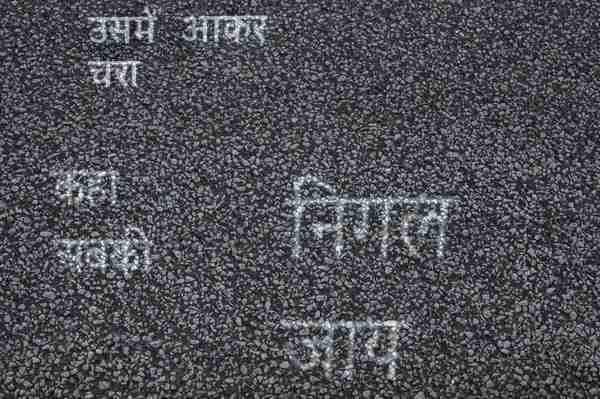 उसमें आकर
चरा
कहा
सबको
निगल
जाय